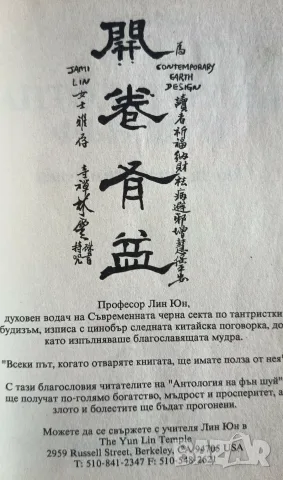 為
CONTEMPORARY
EARTH
DESIGN
讀者祈福納財祛病避邪增慧保平安
開卷有益
JAMI
LIN 女士雅存
Професор Лин Юн,
духовен водач на Съвременната черна секта по тантристки
будизъм, изписа с цинобър следната китайска поговорка, до-
като изпълняваше благославящата мудра.
"Всеки път, когато отваряте книгата, ще имате полза от нея"
С тази благословия читателите на "Антология на фън шуй"
ще получат по-голямо богатство, мъдрост и просперитет, а
злото и болестите ще бъдат прогонени.
Можете да се свържете с учителя Лин Юн в
The Yun Lin Temple
2959 Russell Street, Berkeley, CA 94705 USA
T: 510-841-2347 F: 510-548-2621